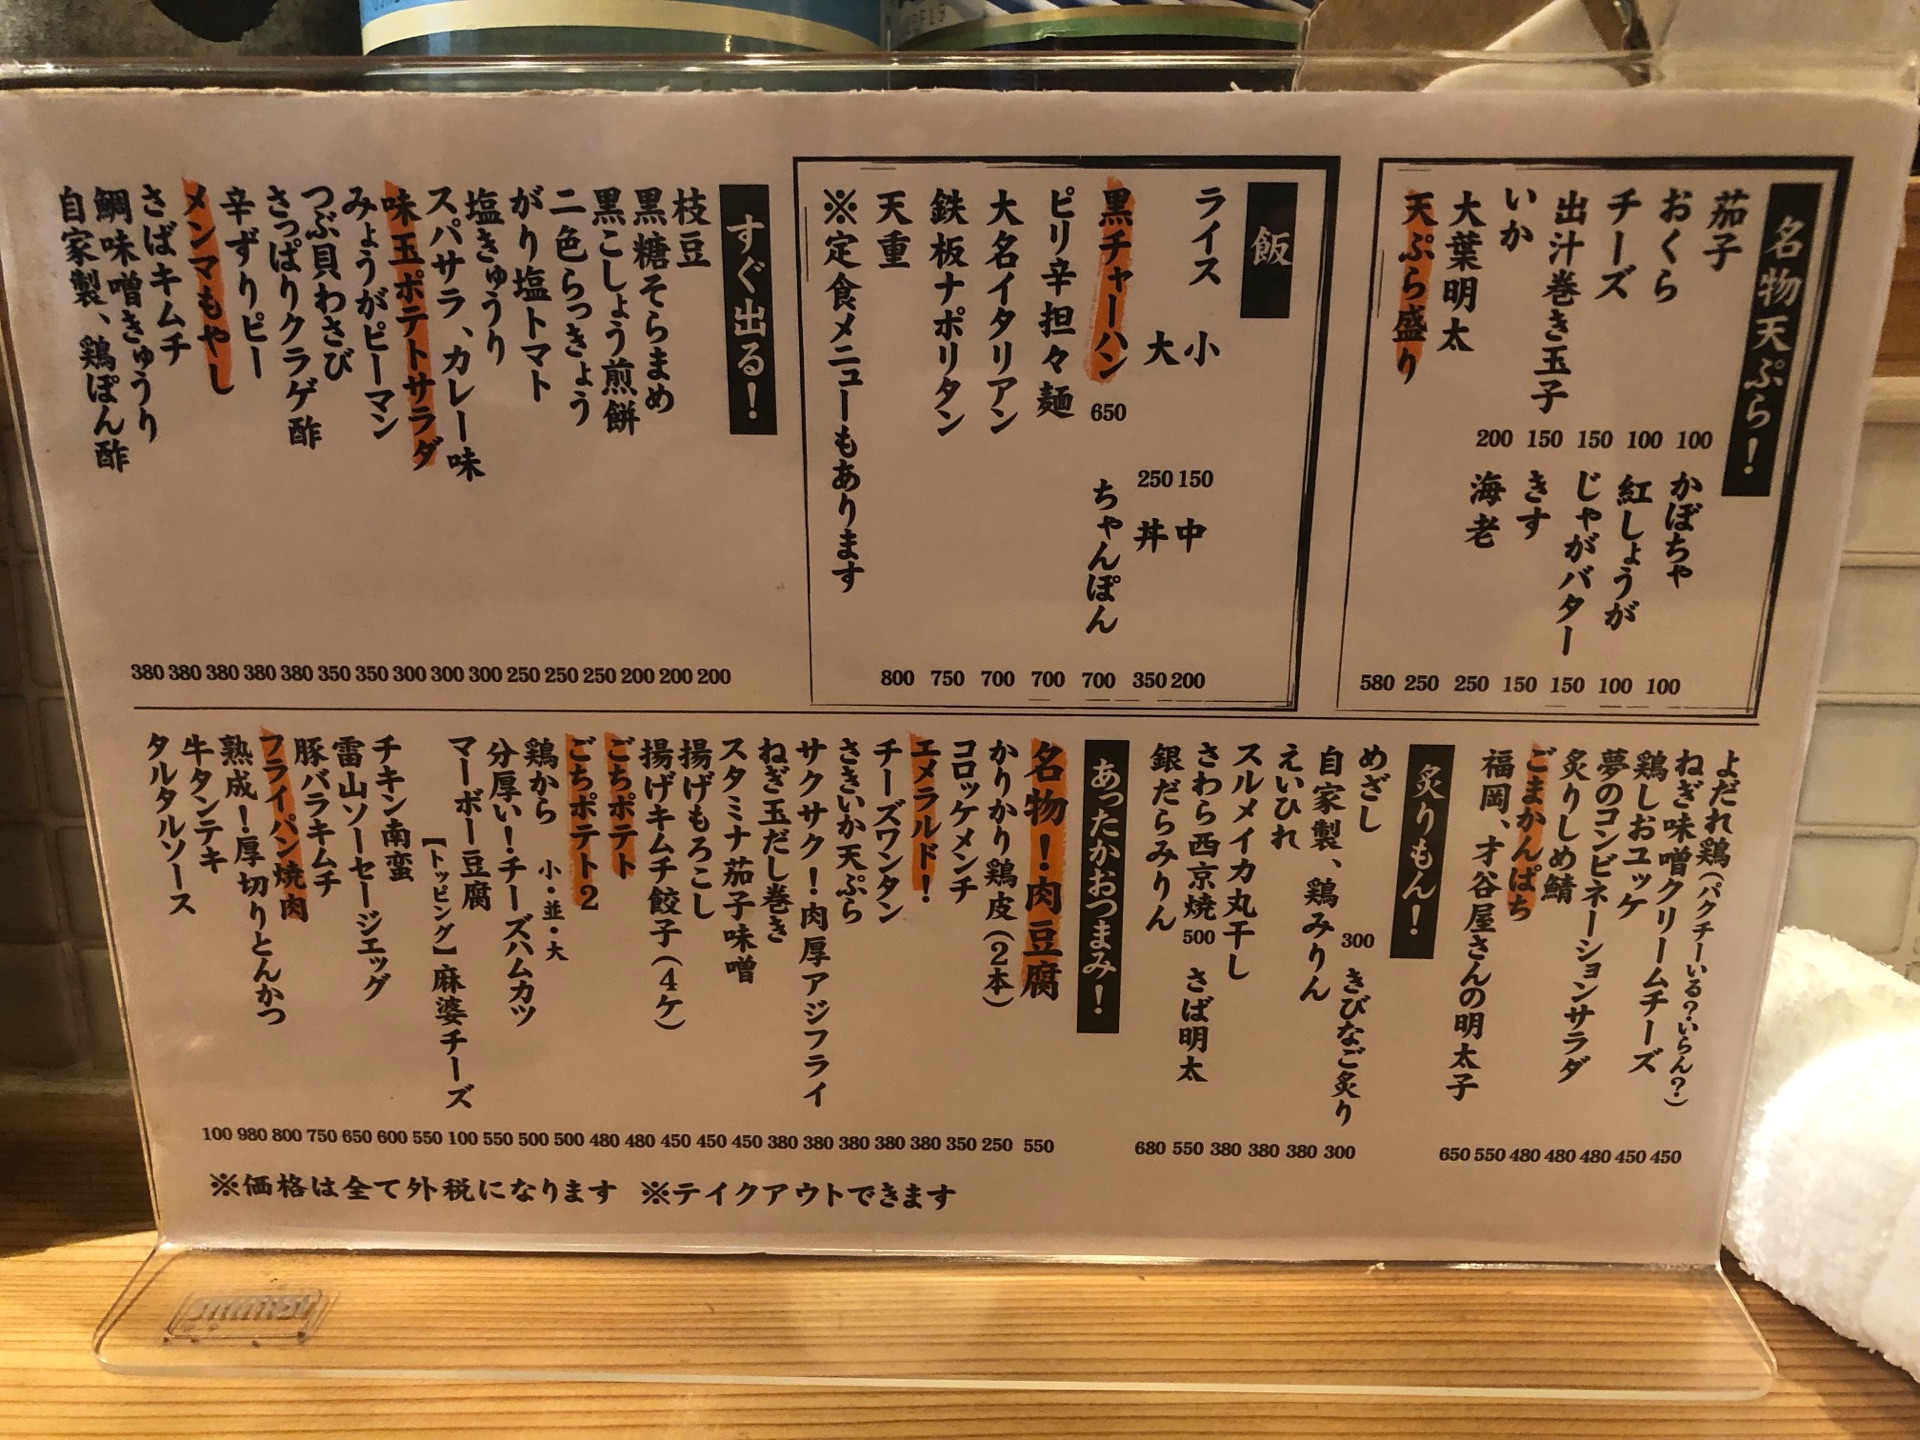 名物天ぷら！
茄子 100 かぼちゃ 100
おくら 100 紅しょうが 100
チーズ 150 じゃがバター 150
出汁巻き玉子 150 きす 150
いか 200 海老 250
大葉明太 250
天ぷら盛り 580
飯
ライス 小 150 中 200
大 250 丼 350
黒チャーハン 650 ちゃんぽん 700
ピリ辛担々麺 700
大名イタリアン 700
鉄板ナポリタン 750
天重 800
※定食メニューもあります
すぐ出る！
枝豆 200
黒糖そらまめ 200
黒こしょう煎餅 200
二色らっきょう 250
がり塩トマト 250
塩きゅうり 250
スパサラ、カレー味 300
味玉ポテトサラダ 300
みょうがピーマン 300
つぶ貝わさび 350
さっぱりクラゲ酢 350
辛ずりピー 380
メンマもやし 380
さばキムチ 380
鯛味噌きゅうり 380
自家製、鶏ぽん酢 380
よだれ鶏（パクチーいる？いらん？） 450
ねぎ味噌クリームチーズ 450
鶏しおユッケ 480
夢のコンビネーションサラダ 480
炙りしめ鯖 480
ごまかんぱち 550
福岡、才谷屋さんの明太子 650
炙りもん！
めざし 300 きびなご炙り 300
自家製、鶏みりん 380
えいひれ 380
スルメイカ丸干し 380
さわら西京焼 500 さば明太 550
銀だらみりん 680
あったかおつまみ！
名物！肉豆腐 550
かりかり鶏皮（2本） 250
コロッケメンチ 350
エメラルド！ 380
チーズワンタン 380
さきいか天ぷら 380
サクサク！肉厚アジフライ 380
ねぎ玉だし巻き 380
スタミナ茄子味噌 450
揚げもろこし 450
揚げキムチ餃子（4ケ） 450
ごちポテト 480
ごちポテト2 480
鶏から 小・並・大 500
分厚い！チーズハムカツ 500
マーボー豆腐 550
【トッピング】麻婆チーズ 100
チキン南蛮 550
雷山ソーセージエッグ 600
豚バラキムチ 650
フライパン焼肉 750
熟成！厚切りとんかつ 800
牛タンテキ 980
タルタルソース 100
※価格は全て外税になります ※テイクアウトできます